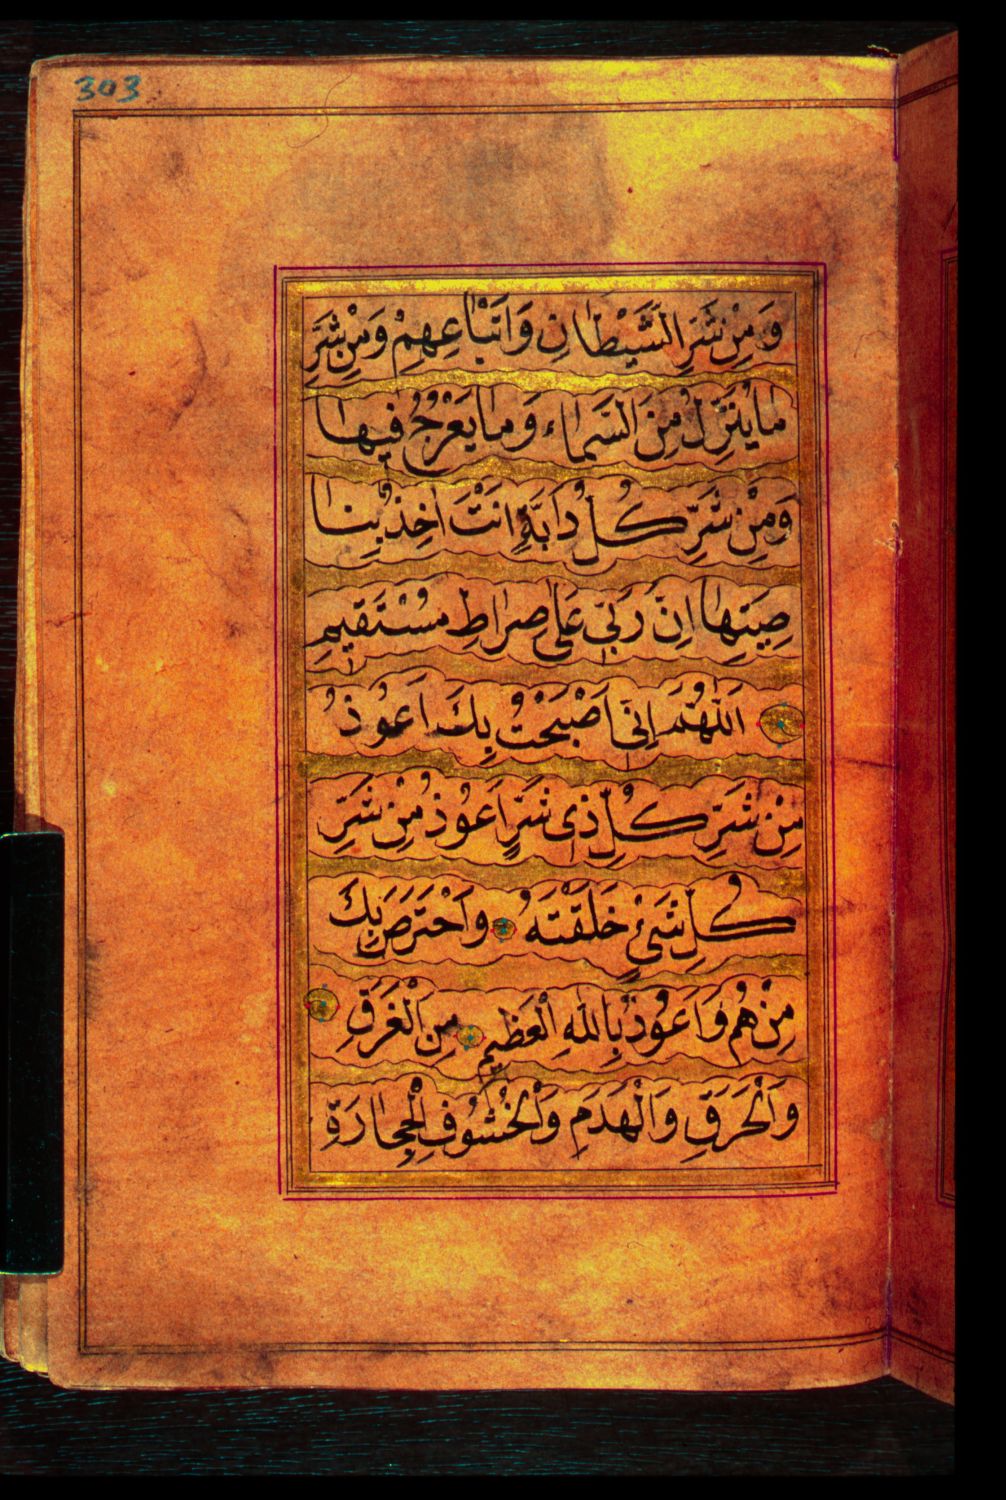 303
وَمِنْ شَرِّ الشَّيْطَانِ وَاَتْبَاعِهِمْ وَمِنْ شَرِّ
مَا يُنَزَّلُ مِنَ السَّمَاءِ وَمَا يَعْرُجُ فِيهَا
وَمِنْ شَرِّ كُلِّ دَابَّةٍ اَنْتَ اٰخِذٌ بِنَا
صِيَتِهَا اِنَّ رَبِّي عَلٰى صِرَاطٍ مُسْتَقِيمٍ
اَللّٰهُمَّ اِنِّي اَصْبَحْتُ بِكَ اَعُوذُ
مِنْ شَرِّ كُلِّ ذِى شَرٍّ اَعُوذُ مِنْ شَرِّ
كُلِّ شَىْءٍ خَلَقْتَهُ وَاَحْتَرِصُ بِكَ
مِنْهُمْ وَاَعُوذُ بِاللّٰهِ الْعَظِيمِ مِنَ الْغَرَقِ
وَالْحَرَقِ وَالْهَدَمِ وَالْخُسُوفِ الْحِجَارَةِ